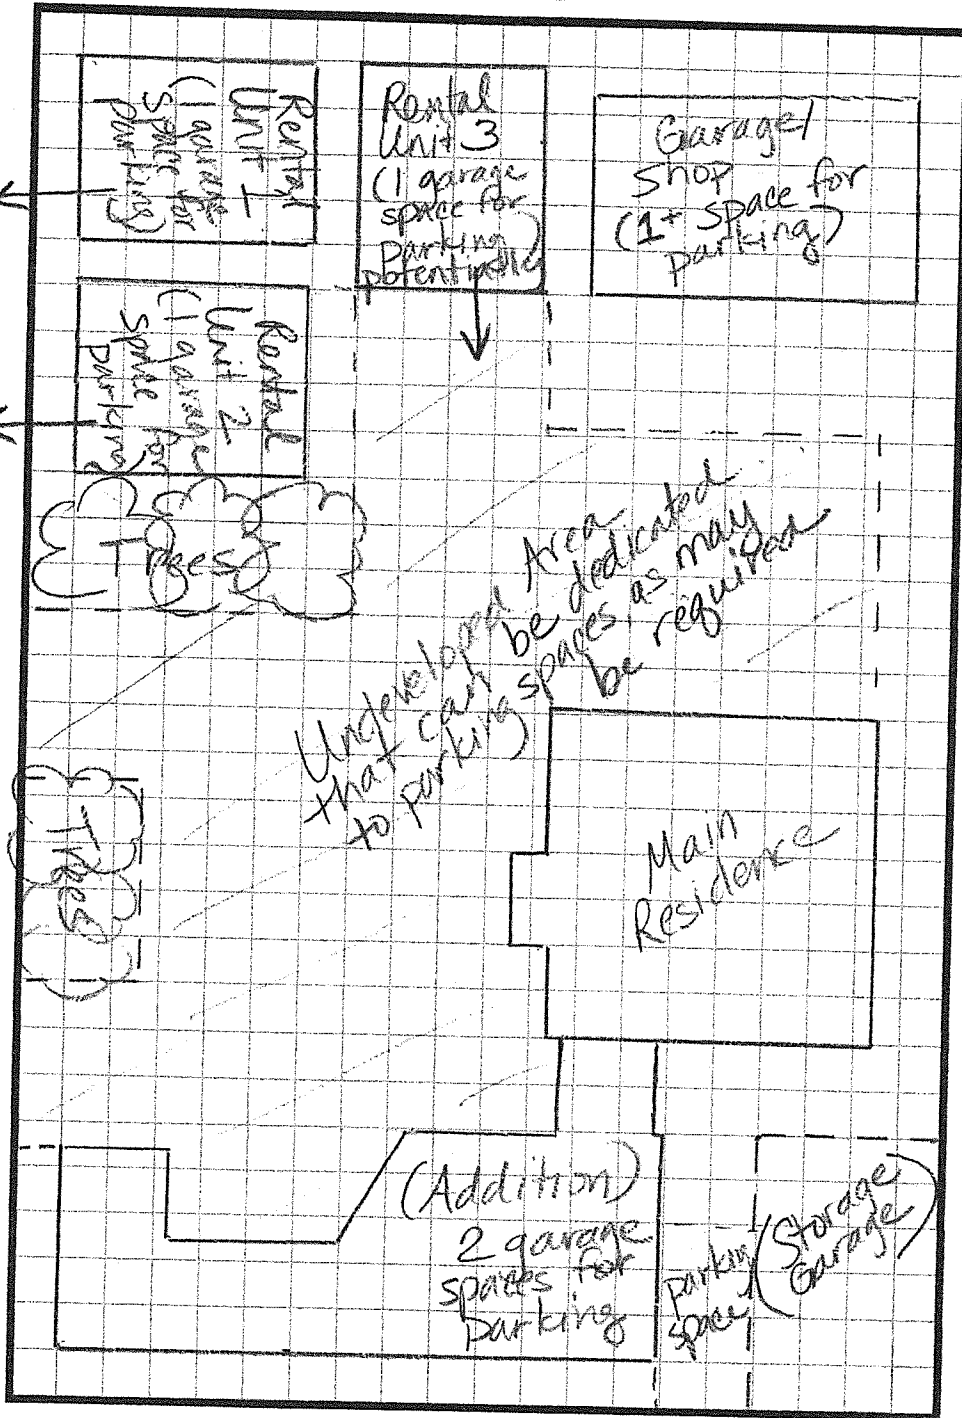 Rental
Unit 1
(1 garage
space for
parking)
Rental
Unit 3
(1 garage
space for
parking)
potentially
Garage/
Shop
(1+ space for
parking)
Rental
Unit 2
(1 garage
space for
parking)
Trees
Undeveloped Area
that can be dedicated
to parking spaces, as may
be required
Trees
Main
Residence
(Addition)
2 garage
spaces for
parking
parking
space
(Storage
Garage)